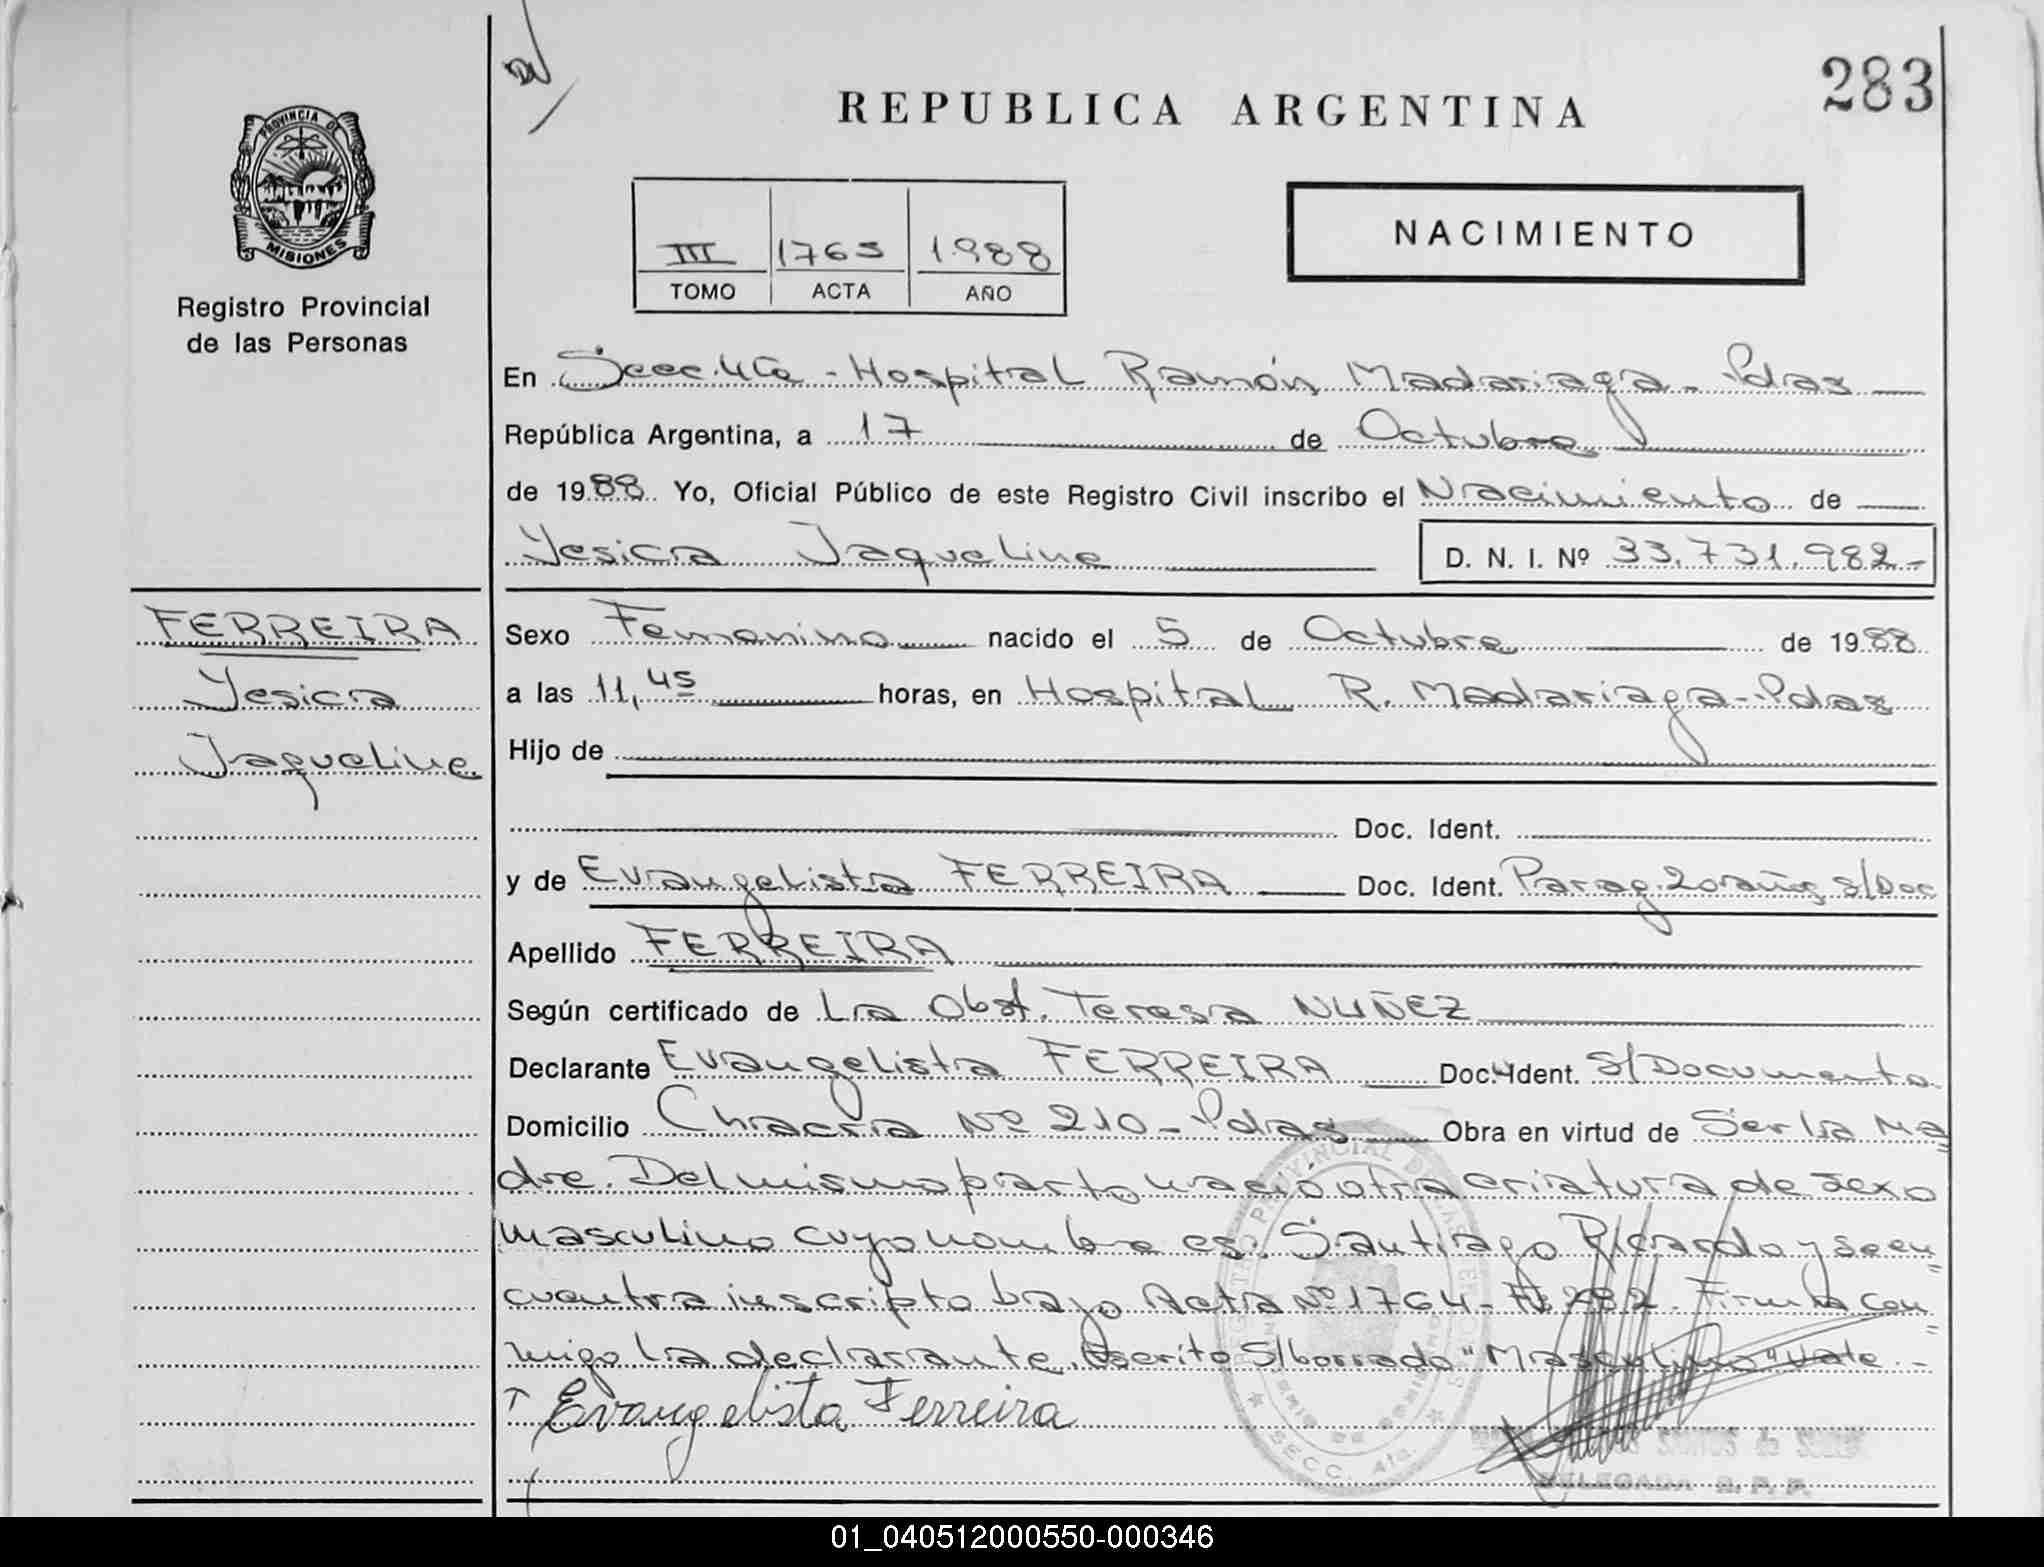 283
REPUBLICA ARGENTINA
PROVINCIA DE
MISIONES
Registro Provincial
de las Personas
III 1765 1988
TOMO ACTA AÑO
NACIMIENTO
En Secc. 4ta - Hospital Ramón Madariaga - Pdas
República Argentina, a 17 de Octubre
de 1988. Yo, Oficial Público de este Registro Civil inscribo el Nacimiento de
Yesica Jaqueline D. N. I. Nº 33.731.982.-
FERREIRA
Yesica
Jaqueline
Sexo Femenino nacido el 5 de Octubre de 1988
a las 11,45 horas, en Hospital R. Madariaga - Pdas
Hijo de
Doc. Ident.
y de Evangelista FERREIRA Doc. Ident. Parag. 20 años s/Doc
Apellido FERREIRA
Según certificado de La Obst. Teresa NUÑEZ
Declarante Evangelista FERREIRA Doc. Ident. S/Documento
Domicilio Chacra Nº 210 - Pdas Obra en virtud de Ser la Ma
dre. Del mismo parto nació otra criatura de sexo
masculino cuyo nombre es: Santiago Ricardo y se en
cuentra inscripto bajo Acta Nº 1764 - Fº 282. Firma con
migo la declarante. Escrito S/borrado "Masculino" Vale.-
Evangelista Ferreira
SECC. 4ta.
DELEGADA R. P. P.
01_040512000550-000346